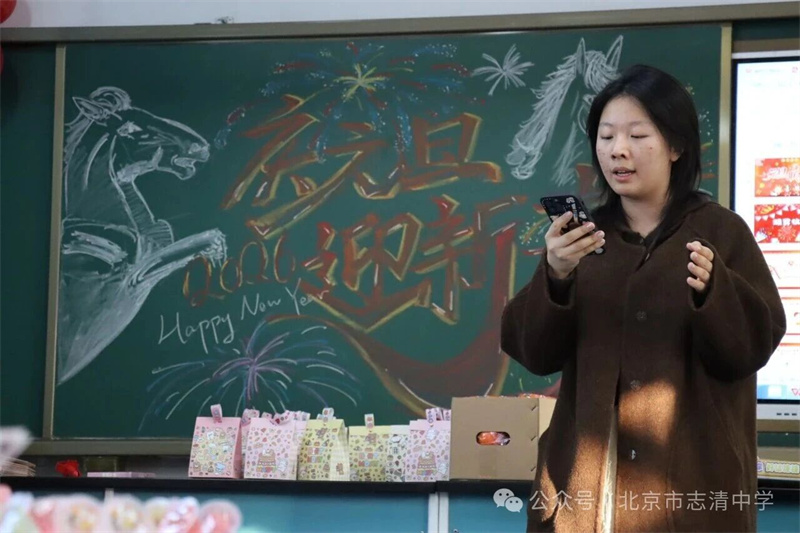 庆元旦
迎新年
2026
Happy New Year
公众号 · 北京市志清中学